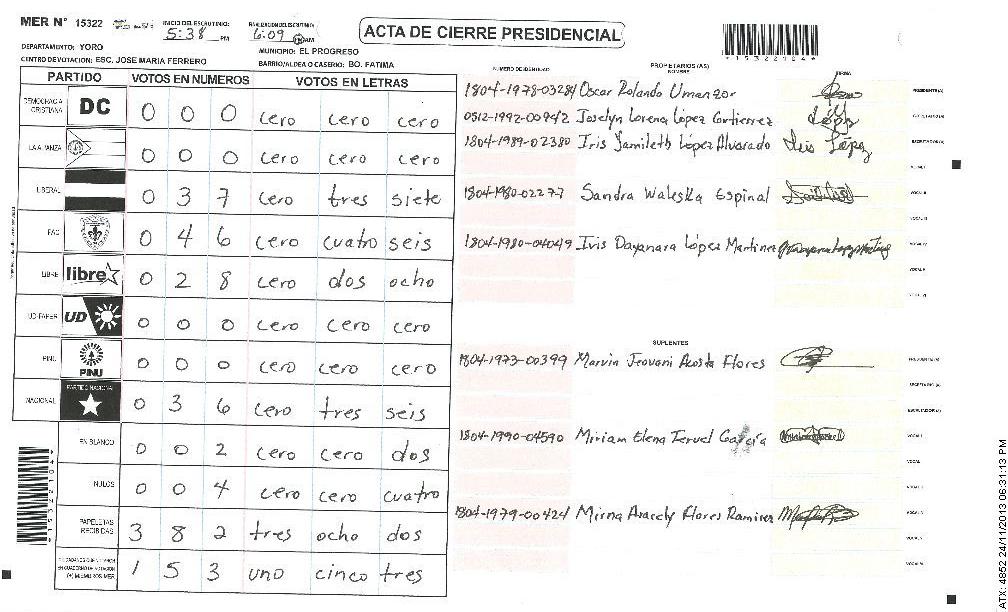 MER N° 15322
INICIO DEL ESCRUTINIO:
5:38 PM
6:09
ACTA DE CIERRE PRESIDENCIAL
*1532210 4*
DEPARTAMENTO: YORO
MUNICIPIO: EL PROGRESO
CENTRO DE VOTACION: ESC. JOSE MARIA FERRERO
BARRIO/ALDEA O CASERIO: BO. FATIMA
PARTIDO VOTOS EN NUMEROS VOTOS EN LETRAS
DEMOCRACIA CRISTIANA DC 0 0 0 cero cero cero
LA ALIANZA 0 0 0 cero cero cero
LIBERAL 0 3 7 cero tres siete
PAC 0 4 6 cero cuatro seis
LIBRE libre 0 2 8 cero dos ocho
UD-FAPER UD 0 0 0 cero cero cero
PINU PINU 0 0 0 cero cero cero
NACIONAL PARTIDO NACIONAL 0 3 6 cero tres seis
EN BLANCO 0 0 2 cero cero dos
NULOS 0 0 4 cero cero cuatro
PAPELETAS RECIBIDAS 3 8 2 tres ocho dos
(+) MIEMBROS MER 1 5 3 uno cinco tres
NUMERO DE IDENTIDAD PROPIETARIOS (AS) NOMBRE FIRMA
1804-1978-03284 Oscar Rolando Umanzor PRESIDENTE (A)
0512-1992-00942 Joselyn Lorena López Gutierrez López SECRETARIO (A)
1804-1989-02380 Iris Yamileth López Alvarado Iris López ESCRUTADOR (A)
VOCAL I
1804-1980-02277 Sandra Waleska Espinal VOCAL II
VOCAL III
1804-1980-04049 Iris Dayanara López Martinez VOCAL IV
VOCAL V
VOCAL VI
SUPLENTES
1804-1973-00399 Marvin Jeovani Acosta Flores PRESIDENTE (A)
SECRETARIO (A)
ESCRUTADOR (A)
1804-1990-04590 Miriam Elena Teruel García VOCAL I
VOCAL
VOCAL
1804-1979-00424 Mirna Aracely Flores Ramirez VOCAL
VOCAL
VOCAL
ATX: 4852 24/11/2013 06:31:13 PM